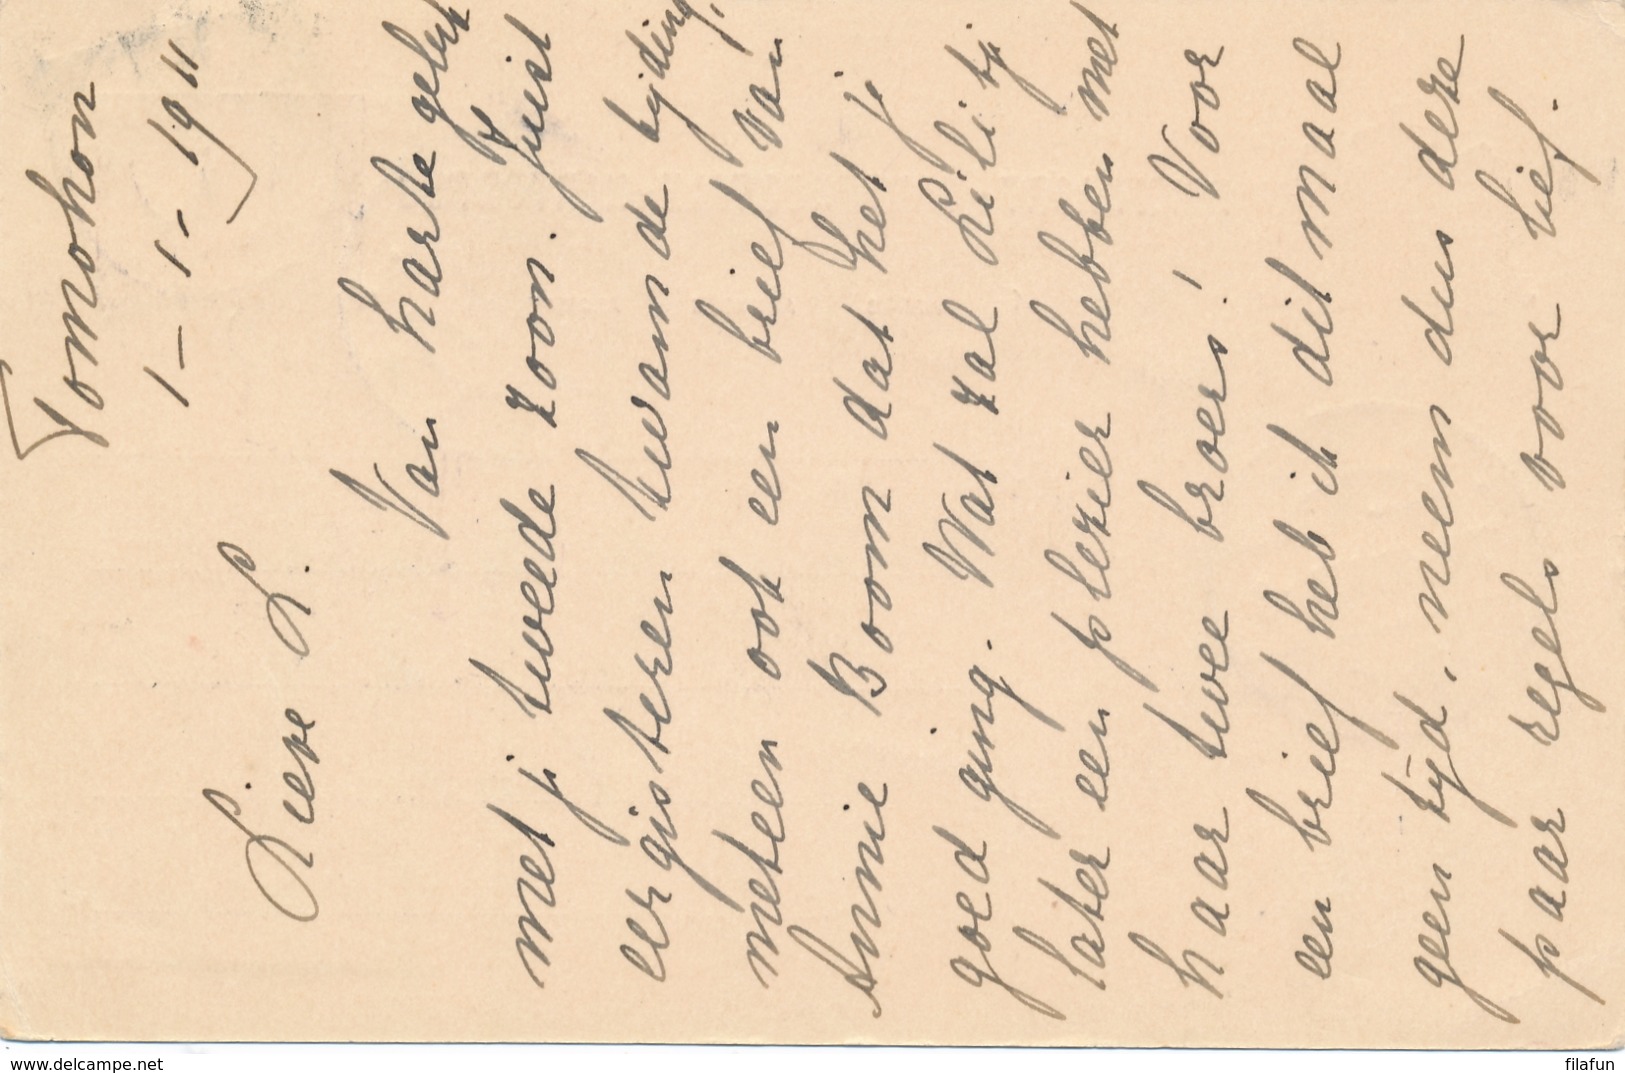 Tomohon
1 - 1 - 1911
Lieve L.
Van harte geluk
met je tweede zoon. Juist
eergisteren kwam de tijding,
meteen ook een brief van
Annie Boom dat het je
goed ging. Wat zal Lili bij
later een plezier hebben met
haar twee broers! Voor
een brief heb ik dit maal
geen tijd, neem dus deze
paar regels voor lief.
www.delcampe.net
filafun